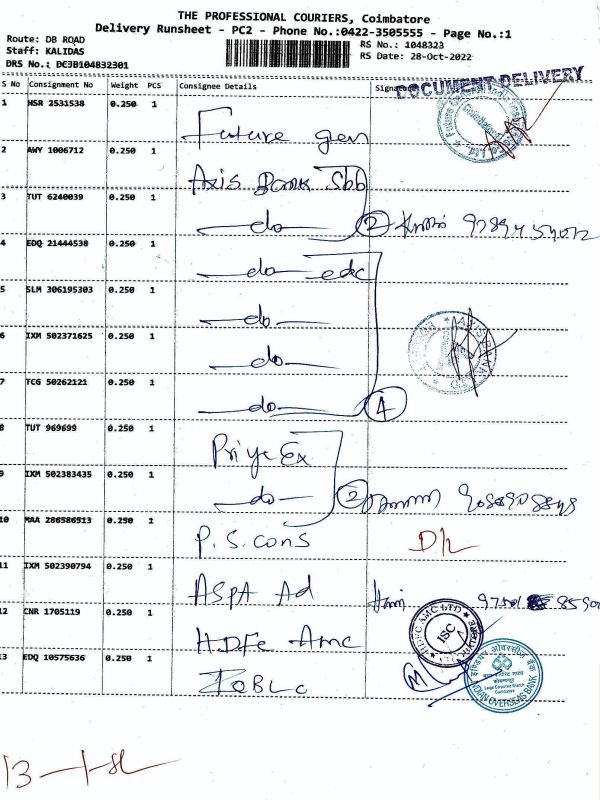 THE PROFESSIONAL COURIERS, Coimbatore
Delivery Runsheet - PC2 - Phone No.:0422-3505555 - Page No.:1
Route: DB ROAD
Staff: KALIDAS
DRS No.: DC3B104832301
RS No.: 1048323
RS Date: 28-Oct-2022
S No Consignment No Weight PCS Consignee Details
DOCUMENT DELIVERY
1 HSR 2531538 0.250 1 Future gen
2 AWY 1006712 0.250 1 Axis Bank Sbb
3 TUT 6240039 0.250 1 do 2
4 EDQ 21444538 0.250 1 do edc
5 SLM 306195303 0.250 1 do
6 IXM 502371625 0.250 1 do
7 TCG 50262121 0.250 1 do 4
8 TUT 969699 0.250 1 Priya Ex
9 IXM 502383435 0.250 1 do 2
10 MAA 286586513 0.250 1 P.S.cons
11 IXM 502390794 0.250 1 ASPA Ad
12 CNR 1705119 0.250 1 HDFC Amc
HDFC AMC LTD
ISC
13 EDQ 10575636 0.250 1 IOBLC
INDIAN OVERSEAS BANK